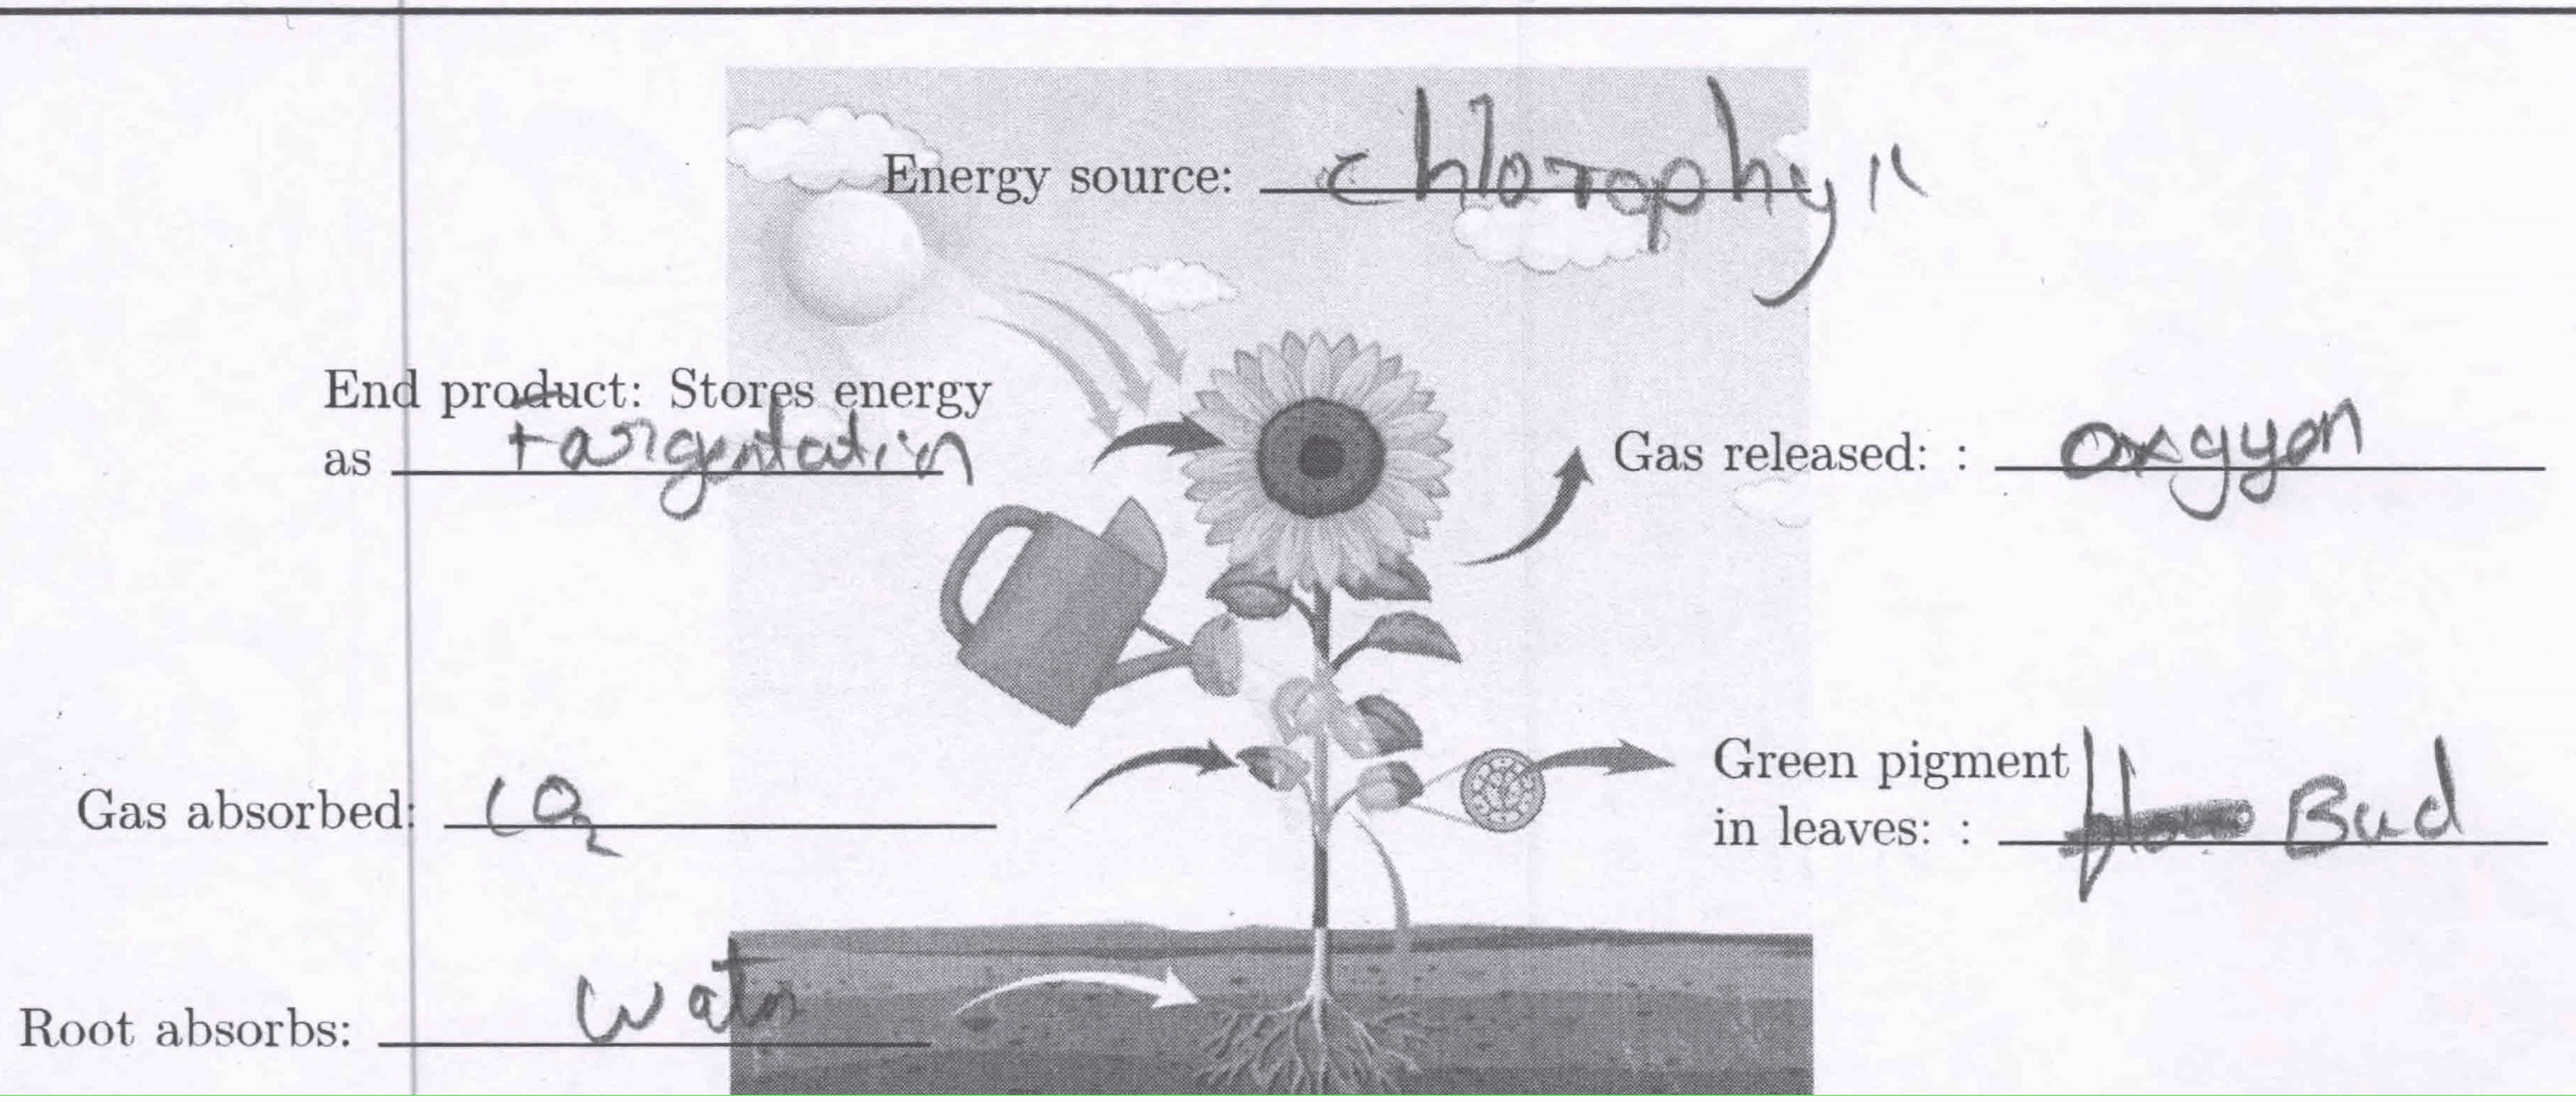 Energy source: chlorophyll
End product: Stores energy
as
Gas released: : oxgyen
Gas absorbed: CO2
Green pigment
in leaves: : Bud
Root absorbs: water